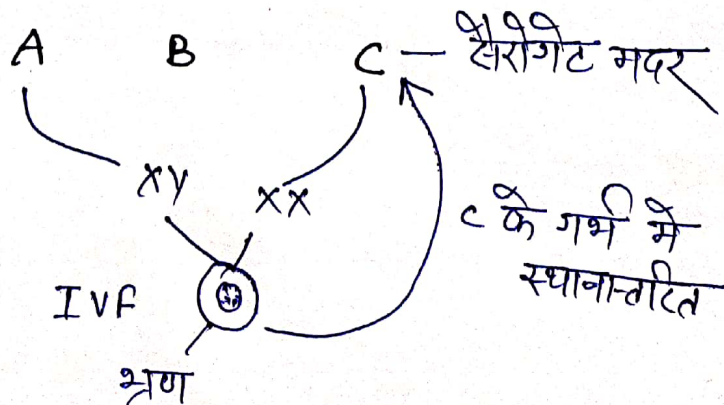 A B C — सैरोगेट मदर
XY XX
C के गर्भ में
स्थानान्तरित
IVF
भ्रण